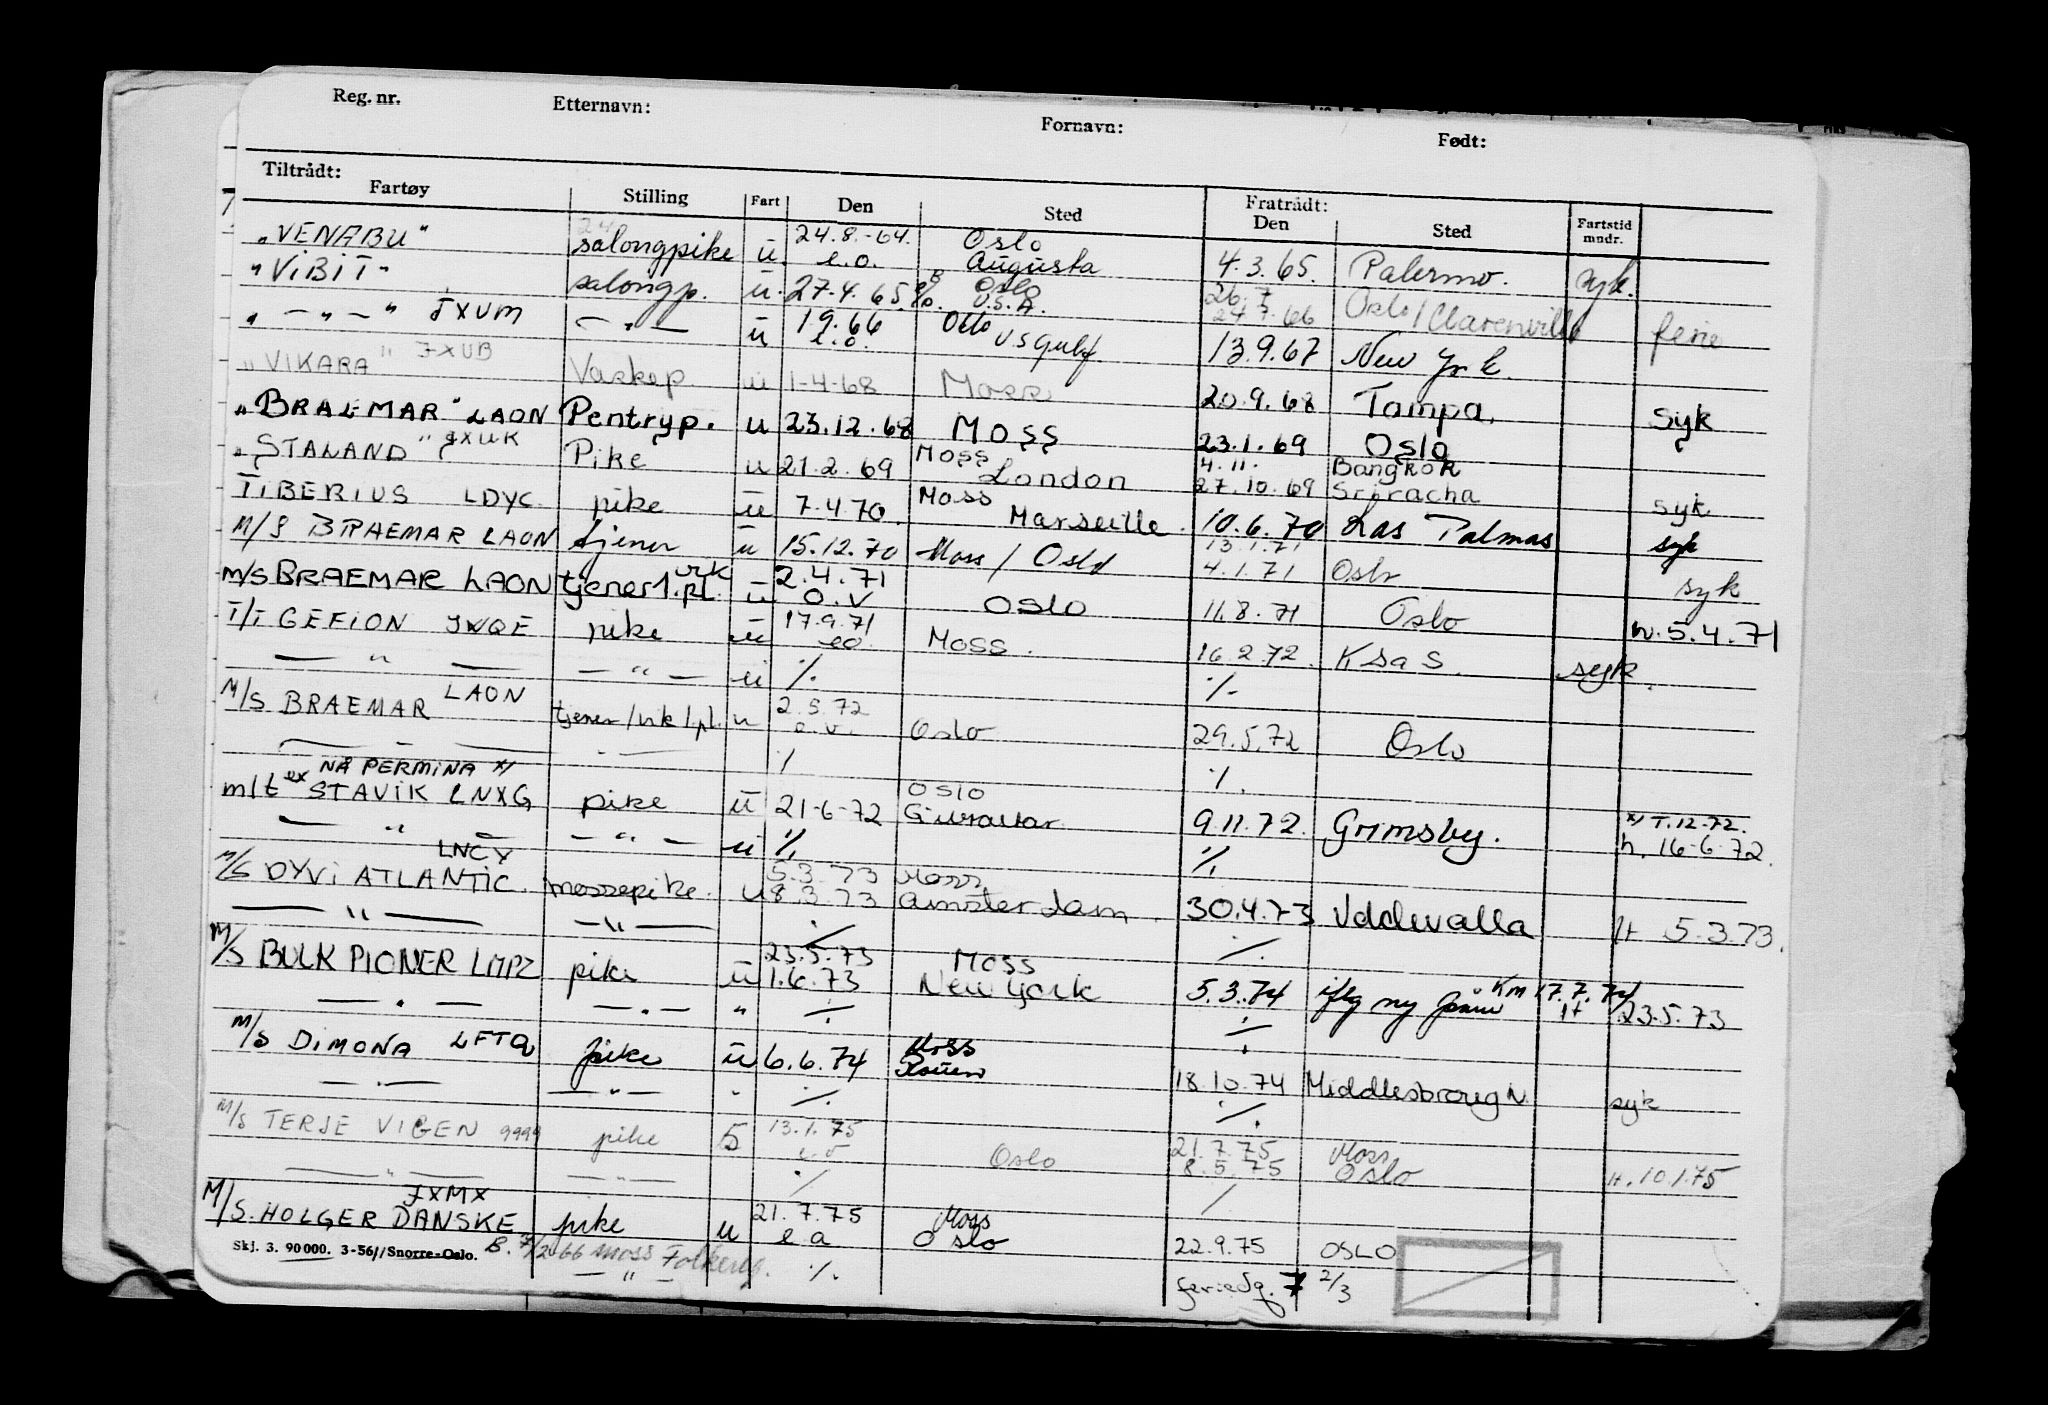 Reg. nr. Etternavn: Fornavn: Født:
Tiltrådt: Fratrådt:
Fartøy Stilling Fart Den Sted Den Sted Fartstid mndr.
"VENABU" salongpike u. 24.8.-64. e.o. Oslo Augusta 4.3.65. Palermo. syk.
"ViBiT" salongp. u. 27.4.65 Oslo U.S.A. 26.7 24.7.66 Oslo/Clarenville ferie
" — " — " JXUM — " — u 1.9.66 e.o. Oslo US Gulf 13.9.67 New York.
"VIKARA" JXUB Vaskep u 1-4-68 Moss 20.9.68 Tampa. Syk
"BRAEMAR" LAON Pentryp. u 23.12.68 Moss 23.1.69 Oslo
"STALAND" JXUK Pike u 21.2.69 Moss London 4.11. 27.10.69 Bangkok Sriracha syk
TiBERIUS LDYC. pike u 7.4.70. Moss Marseille. 10.6.70 Las Palmas syk
M/S BRAEMAR LAON tjener u 15.12.70 Moss / Oslo 13.1.71 4.1.71 Oslo syk
M/S BRAEMAR LAON tjener 1.pl. vik u 2.4.71 o.v Oslo 11.8.71 Oslo h. 5.4.71
T/T GEFION JWQE pike u 17.9.71 eo. Moss. 16.2.72. KSaS. syk.
— " — — " — u %. %
M/S BRAEMAR LAON tjener/vik 1.pl. u 2.5.72 o.v. Oslo 29.5.72 Oslo
— " — — " — / %.
NÅ PERMINA x/
m/t ex STAViK LNXG pike u 21-6-72 Oslo Gibraltar 9.11.72. Grimsby. x/ T.12.72. h. 16-6-72.
— " — — " — u %. %.
M/S DYVi ATLANTIC. LNCY messepike. u 5.3.73 8.3.73 Moss Amsterdam. 30.4.73 Uddevalla H 5.3.73.
— " — — " — % %.
M/S BULK PIONER LMPZ pike u 23.5.73 1.6.73 Moss New York 5.3.74 iflg ny KM 17.7.74 H 23.5.73
— " — — " — " % %
M/S DiMONA LFTQ pike u 6.6.74 Moss Rouen 18.10.74 Middlesbrough syk
— " — — " — " %. %.
M/S TERJE VIGEN 9999 pike 5 13.1.75 o.v Oslo 21.7.75 8.5.75 Moss Oslo H. 10.1.75
— " — — " — % /
M/S. HOLGER DANSKE JXMX pike u 21.7.75 e.a Moss Oslo 22.9.75 OSLO
Skj. 3. 90 000. 3-56//Snorre-Oslo. B. 7/2-66 Moss Folkereg.
— " — %. feriedg. 7 2/3